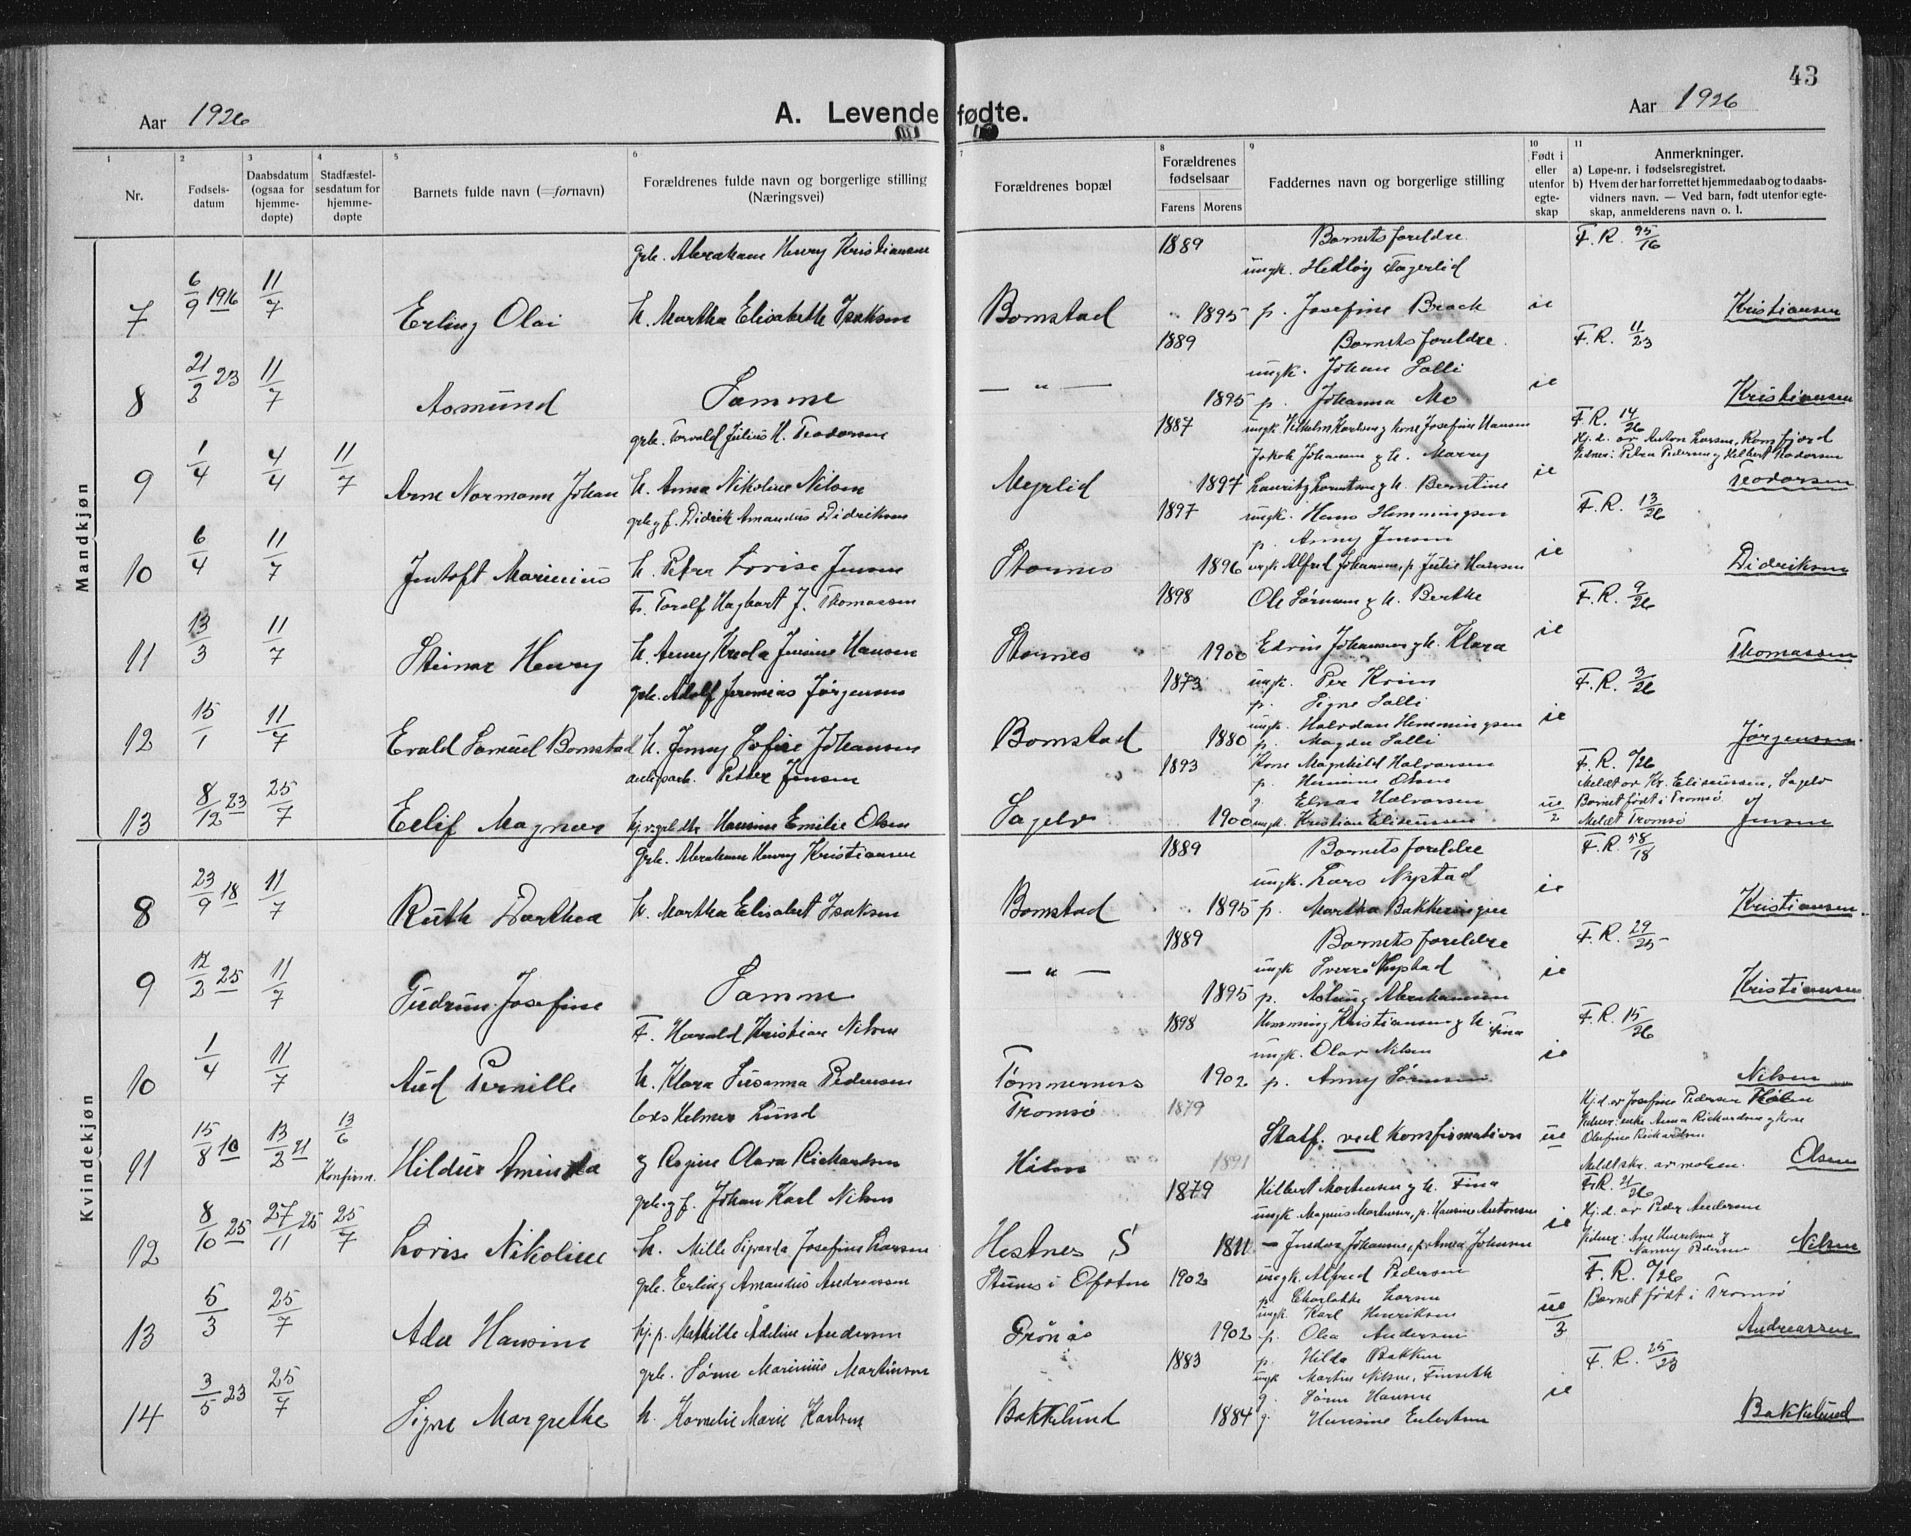 43
Aar 1926
A. Levendefødte.
Aar 1926
1 2 3 4 5 6 7 8 9 10 11
Nr.
Fødsels-
datum
Daabsdatum
(ogsaa for
hjemme-
døpte)
Stadfæstel-
sesdatum for
hjemme-
døpte
Barnets fulde navn (=fornavn)
Forældrenes fulde navn og borgerlige stilling
(Næringsvei)
Forældrenes bopæl
Forældrenes
fødselsaar
Farens Morens
Faddernes navn og borgerlige stilling
Født i
eller
utenfor
egte-
skap
Anmerkninger.
a) Løpe-nr. i fødselsregistret.
b) Hvem der har forrettet hjemmedaab og to daabs-
vidners navn. — Ved barn, født utenfor egte-
skap, anmelderens navn o. l.
Mandkjøn
grb. Abraham Henry Kristiansen 1889 Barnets foreldre F. R. 95/16
ungk. Hedløg Fagerlid
7 6/9 1916 11/7 Erling Olai h. Martha Elisabeth Isaksen Bomstad 1895 p. Josefine Brack ie Kristiansen
1889 Barnets foreldre F. R. 11/23
ungk. Johan Salli
8 21/3 23 11/7 Asmund Samme — " — 1895 p. Johanna Mo ie Kristiansen
grb. Torvald Julius H. Teodorsen 1887 ungk. Vilhelm Karlsen g kone Josefine Hansen F. R. 14/26
Jakob Johansen g h. Marry Hj.d. av Anton Larsen, Ramfjord
Vidner: Petra Pedersen g Helbert Teodorsen
9 1/4 4/4 11/7 Arne Normann Johan h. Anna Nikoline Nilsen Myrlid 1897 Lauritz Lorntsen g h. Berntine ie Teodorsen
grb. g f. Didrik Amandus Didriksen 1897 ungk. Hans Hemmingsen F. R. 13/26
p. Anny Jensen
10 6/4 11/7 Jentoft Marinius h. Petra Lovise Jensen Stornes 1896 ungk Alfred Johansen, p. Julie Hansen ie Didriksen
F. Toralf Hagbart J. Thomassen 1898 Ole Sørensen g h. Berthe F. R. 9/26
11 13/3 11/7 Steinar Henry h. Anny Hansen Stornes 1900 Edvin Johansen g h. Klara ie Thomassen
grb. Adolf Jeremias Jørgensen 1873 ungk. Per F. R. 3/26
p. Signe Salli
ungk. Halvdan Hemmingsen
12 15/1 11/7 Evald Samuel Bomstad h. Jenny Sofie Johansen Bomstad 1880 p. Magda Salli ie Jørgensen
arb. Petter Jensen 1893 Kone Magnhild Halvorsen F. R. 0/26
p. Olsen Meldt av Kr. Eliseussen, Sagelv
g. Halvorsen Barnet født i Tromsø
13 8/12 23 25/7 Eilif Magnar Hansine Emilie Olsen Sagelv 1900 ungk. Kristian Eliseussen ue/2 Meldt Tromsø Jensen
Kvindekjøn
grb. Abraham Henry Kristiansen 1889 Barnets foreldre F. R. 58/18
ungk. Lars Nystad
8 23/9 18 11/7 Ruth Dorthea h. Martha Elisabet Isaksen Bomstad 1895 p. Martha ie Kristiansen
1889 Barnets foreldre F. R. 29/25
ungk Sverre Nystad
9 12/2 25 11/7 Gudrun Josefine Samme — " — 1895 p. Aslaug Abrahamsen ie Kristiansen
F. Harald Kristian Nilsen 1898 Hemming Kristiansen g h. Fina F. R. 15/26
ungk. Olav Nilsen
10 1/4 11/7 Aud Pernille h. Klara Susanna Pedersen Tømmernes 1902 p. Anny Sørensen ie Nilsen
Lars Helmer Lund Tromsø 1879 Hj.d. av Josefine Pedersen
Vidner: enke Anna Richardsen g kone
Olufine Richardsen
11 15/8 10 13/2 21 13/6 Konfirm. Hildur Aminda g Regine Olara Richardsen 1891 Statf. ved konfirmation ue Meldt skr. av moren. Olsen
grb. g f. Johan Karl Nilsen 1879 Hilbert Mortensen g h. Fina F.R. 21/26
ungk. Magnus Mortensen, p. Hansine Antonsen Hj.d. av Peder Andersen
12 8/10 25 27/11 25 25/7 Lovise Nikoline h. Mille Sigvarda Josefine Larsen Hestnes S 1811 — Johansen, p. Anna Johnsen ie Nilsen
grb. Erling Amandus Andreassen 1902 ungk. Alfred Pedersen F. R. 0/26
p. Charlotte Larsen Barnet født i Tromsø
ungk. Karl Henriksen
13 5/3 25/7 Ada Hansine hj. p. Mathille Adeline Andersen Grønås 1902 p. Olea Andersen ue/3 Andreassen
grb. Søren Marinius Martinsen 1883 p. Hilda Bakken F. R. 25/23
ungk Martin Nilsen, Finseth
g. Søren Hansen
14 3/5 23 25/7 Signe Margrethe h. Kornelie Marie Karlsen Bakkelund 1884 g. Hansine ie Bakkelund